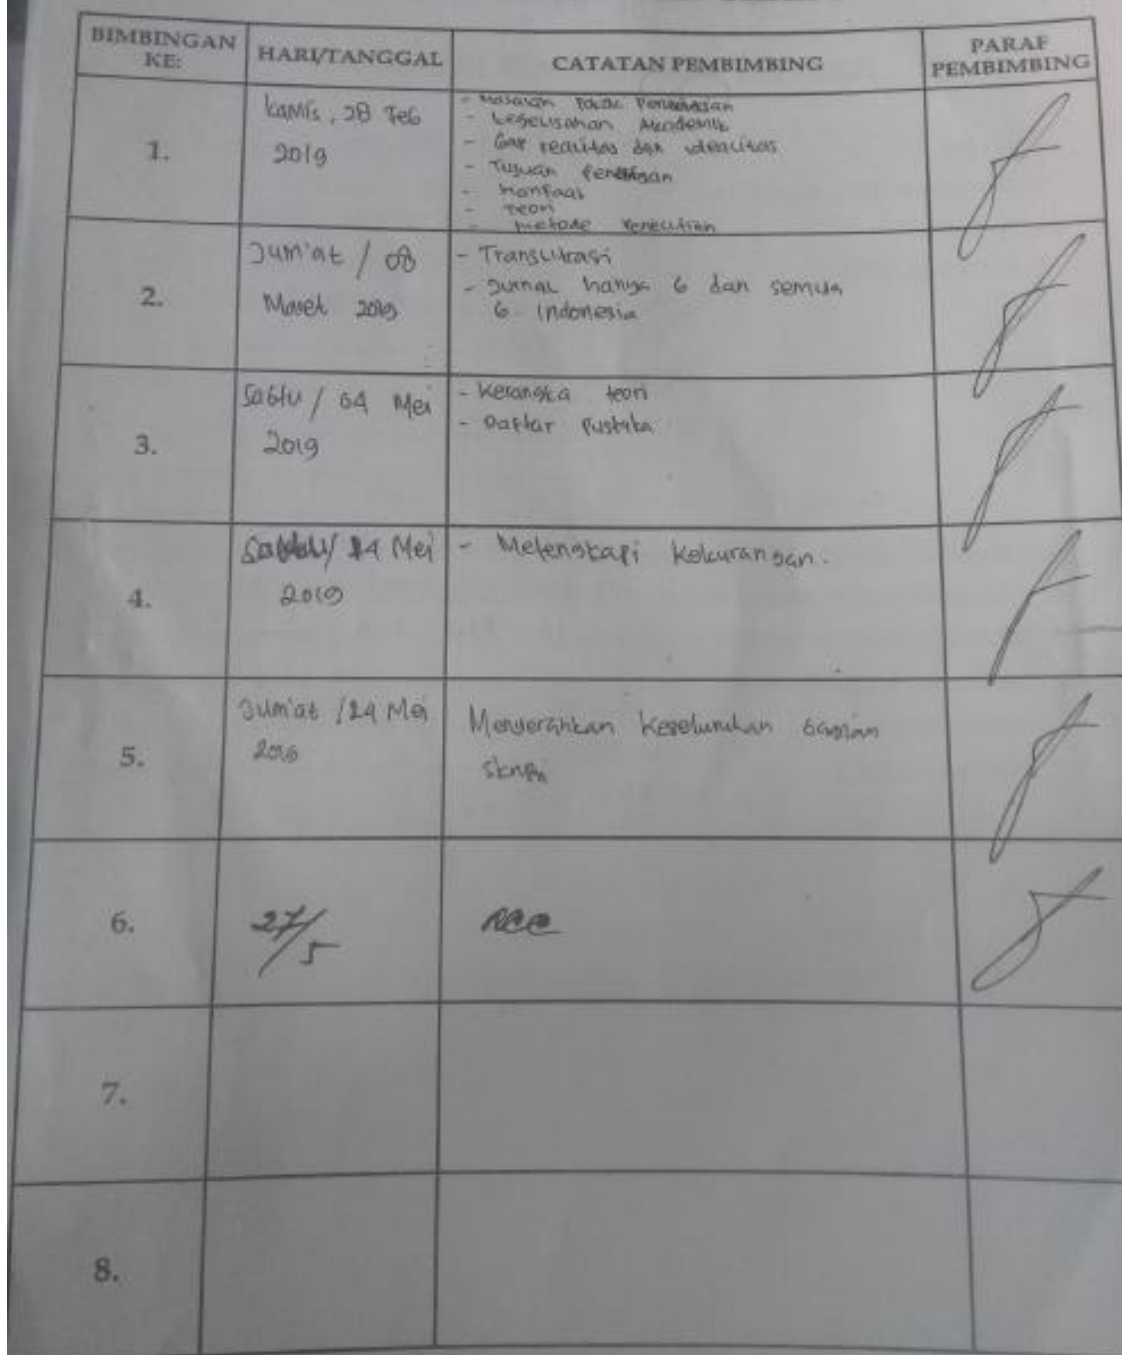 BIMBINGAN KE:
HARI/TANGGAL
CATATAN PEMBIMBING
PARAF PEMBIMBING
1.
Kamis, 28 Feb
2019
- Masalah Pokok Pembahasan
- Kegelisahan Akademik
- Gap realitas dan idealitas
- Tujuan
- Manfaat
- Teori
- Metode Penelitian
2.
Jum'at / 08
Maret 2019
- Translitrasi
- Jurnal hanya 6 dan semua
6 Indonesia
3.
Sabtu / 04 Mei
2019
- Kerangka teori
- Daftar Pustaka
4.
14 Mei
2019
- Melengkapi Kekurangan.
5.
Jum'at / 24 Mei
2019
Menyerahkan Keseluruhan bagian
skripsi
6.
27/5
ACC
7.
8.